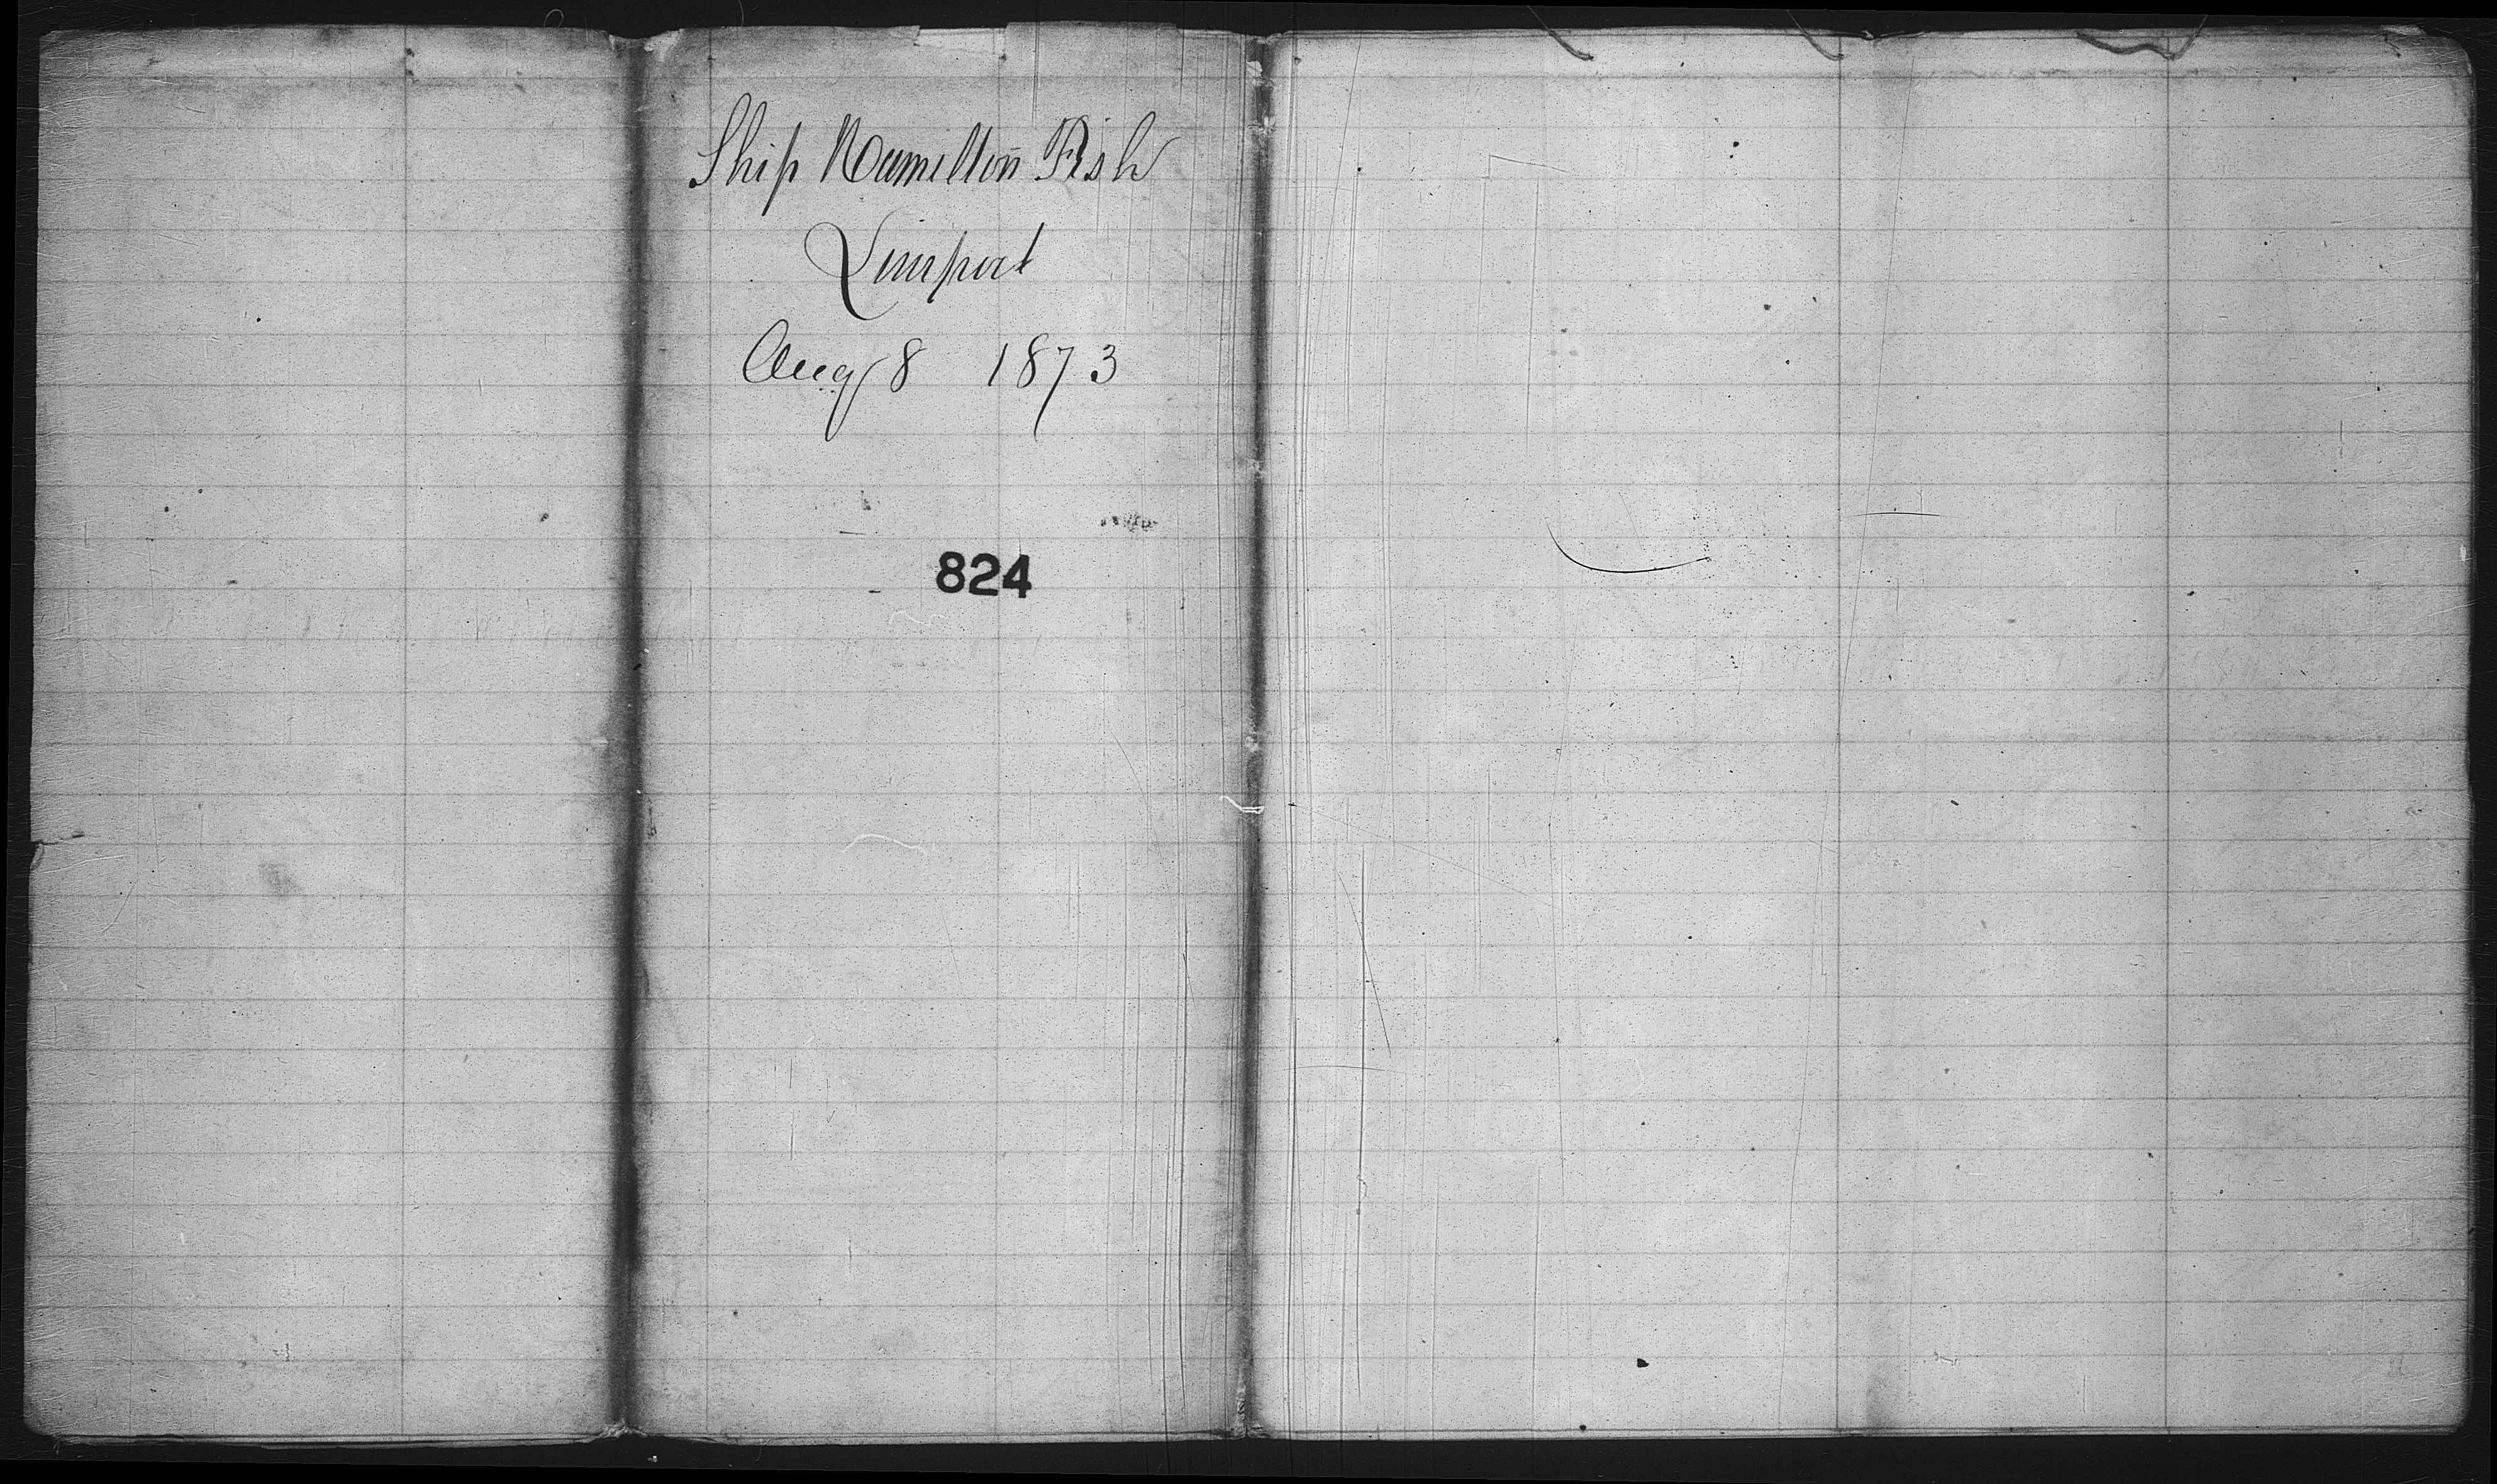 Ship Hamilton Fish
Liverpool
Aug 8 1873
824